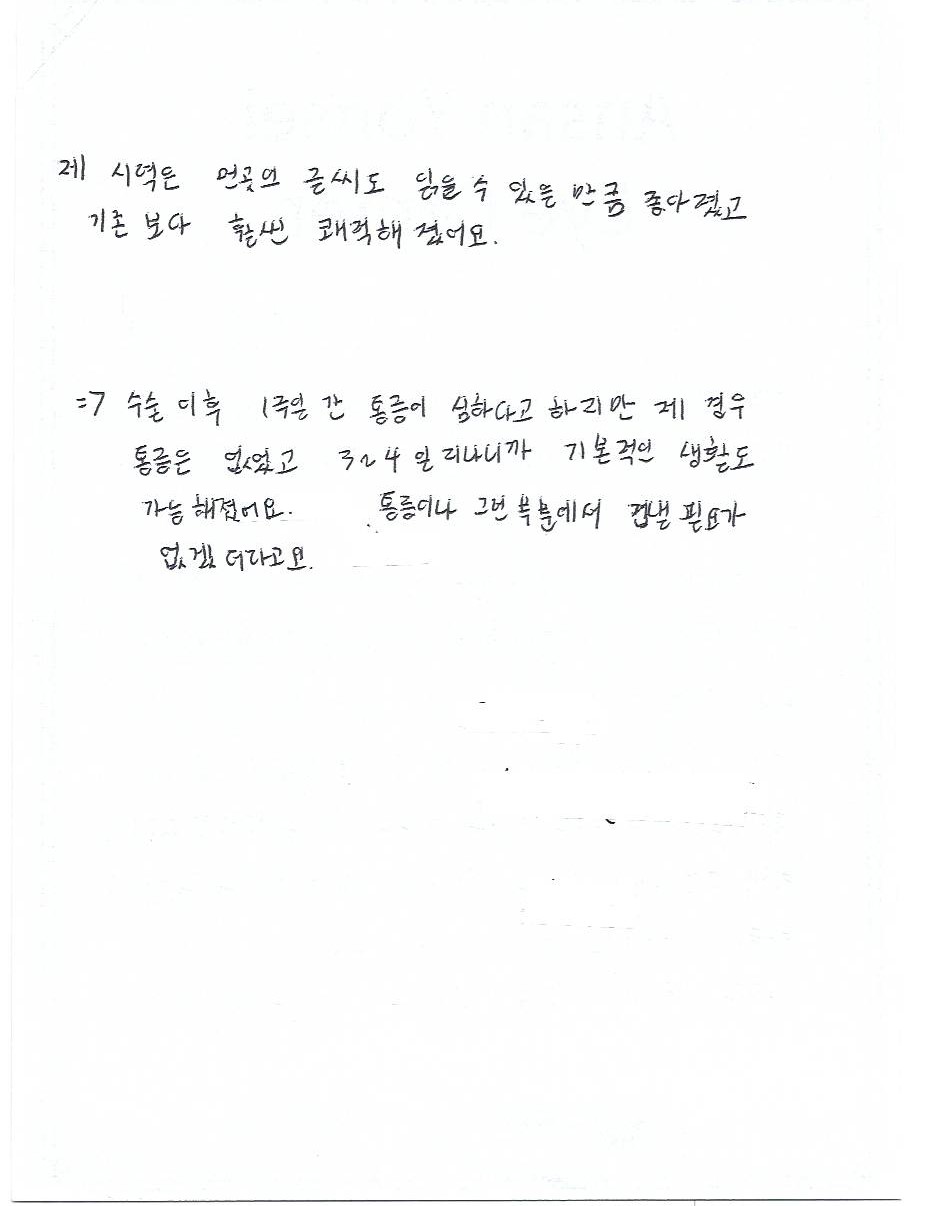 제 시력은 먼곳의 글씨도 읽을 수 있을 만큼 좋아졌고
기존 보다 훨씬 쾌적해 졌어요.
=7 수술 이후 1주일 간 통증이 심하다고 하지만 제 경우
통증은 없었고 3~4일 지나니까 기본적인 생활도
가능해졌어요. 통증이나 그런 부분에서 겁낼 필요가
없겠더라고요.